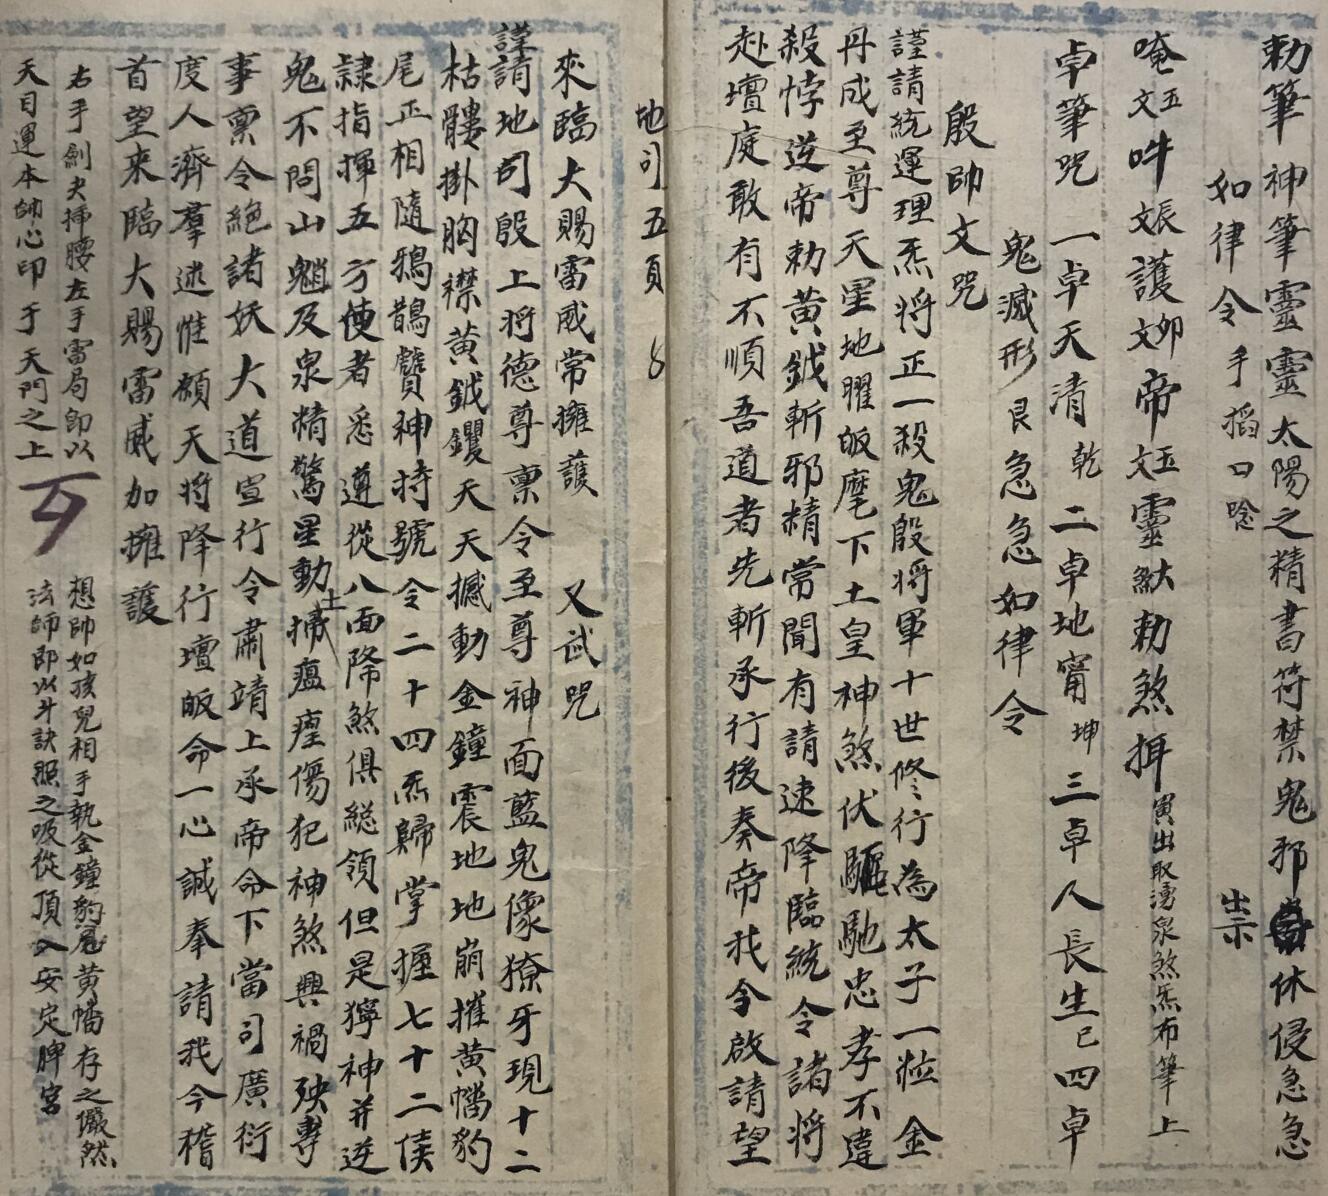 勅筆神筆靈靈太陽之精書符禁鬼邪祟休侵急急
如律令 手搯口唸
唵 吽 護 帝 靈 勅煞 寅出取湧泉煞炁布筆上
卓筆咒 一卓天清乾 二卓地甯坤 三卓人長生已四卓
鬼滅形艮急急如律令
殷帥文咒
謹請統運理炁將正一殺鬼殷將軍十世修行為太子一粒金
丹成至尊天星地曜皈麾下土皇神煞伏驅馳忠孝不違
殺悖逆帝勅黃鉞斬邪精常聞有請速降臨統令諸將
赴壇庭敢有不順吾道者先斬承行後奏帝我今啟請望
地司五頁
來臨大賜雷威常擁護 又武咒
謹請地司殷上將德尊稟令至尊神面藍鬼像獠牙現十二
枯髏掛胸襟黃鉞鑼天天撼動金鐘震地地崩摧黃旛豹
尾正相隨鴉鵲贊神持號令二十四炁歸掌握七十二侯
隸指揮五方使者悉遵從八面降煞俱総領但是獰神并逆
鬼不問山魈及泉精驚星動土掃瘟瘽傷犯神煞興禍殃專
事稟令絕諸妖大道宣行令肅靖上承帝命下當司廣衍
度人濟羣迷惟願天將降行壇皈命一心誠奉請我今稽
首望來臨大賜雷威加擁護
右手劍夬挿腰左手雷局即以
天目運本帥心印于天門之上
想帥如孩兒相手執金鐘豹尾黃旛存之儼然
法師即以斗訣照之吸從頂入安定脾宮